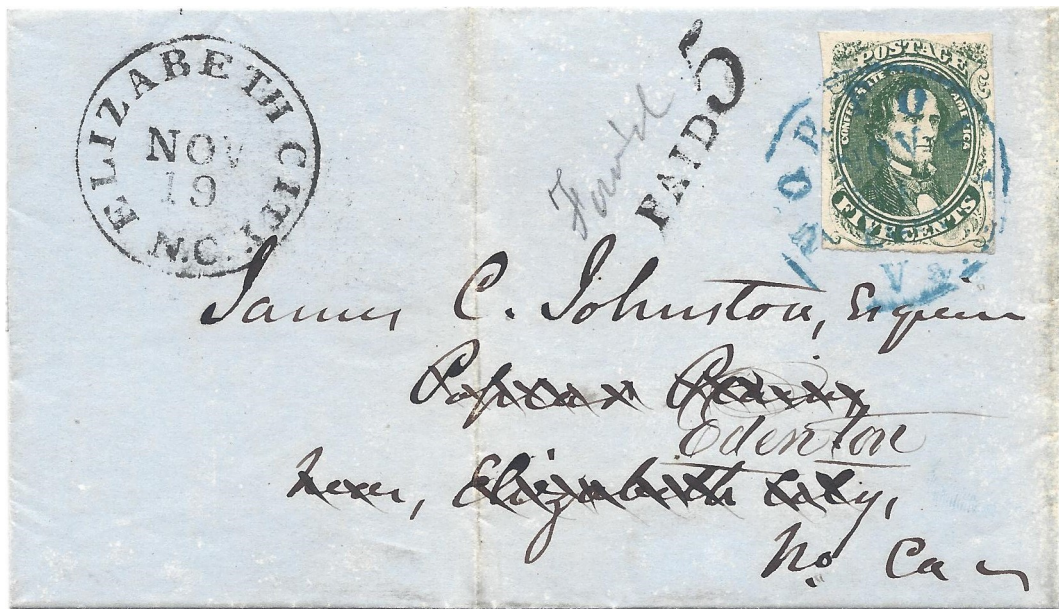 ELIZABETH CITY
NOV
19
N.C.
Forwd
PAID 5
POSTAGE
CONFEDERATE STATES OF AMERICA
FIVE CENTS
NOV
VA
James C. Johnston, Esquire
Edenton
near, Elizabeth City,
No. Ca